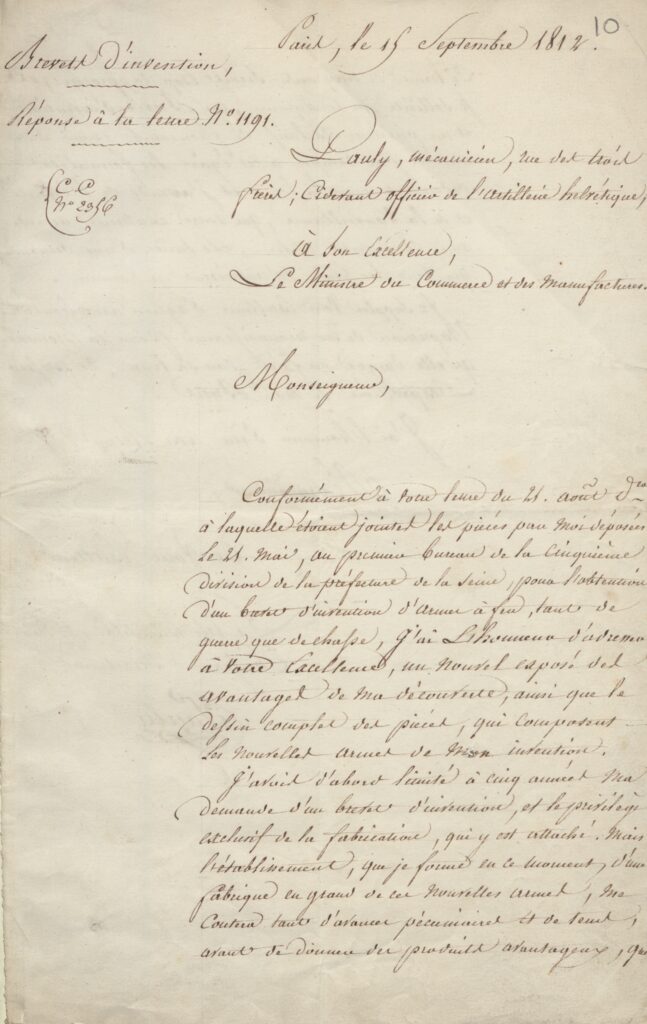 10
Paris, le 15 Septembre 1812.
Brevets d'invention,
Réponse à la lettre N.º 1191.
C. C
Nº 2356
Pauly, mécanicien, rue des trois
frères, Cidevant officier de l'artillerie helvétique,
à Son Excellence,
Le Ministre du Commerce et des Manufactures.
Monseigneur,
Conformément à votre lettre du 21. août d.er
à laquelle étoient jointes les pièces par moi déposées
le 21. Mai, au premier bureau de la cinquième
division de la préfecture de la Seine, pour l'obtention
d'un brevet d'invention d'armes à feu, tant de
guerre que de chasse, j'ai L'honneur d'adresser
à Votre Excellence, un nouvel exposé des
avantages de ma découverte, ainsi que le
dessin complet des pièces, qui composent
les nouvelles armes de mon invention.
J'avois d'abord limité à cinq années ma
demande d'un brevet d'invention, et le privilège
exclusif de la fabrication, qui y est attaché. Mais
l'établissement, que je forme en ce moment, d'une
fabrique en grand de ces nouvelles armes, me
coutera tant d'avances pécuniaires et de tems,
avant de donner des produits avantageux, que